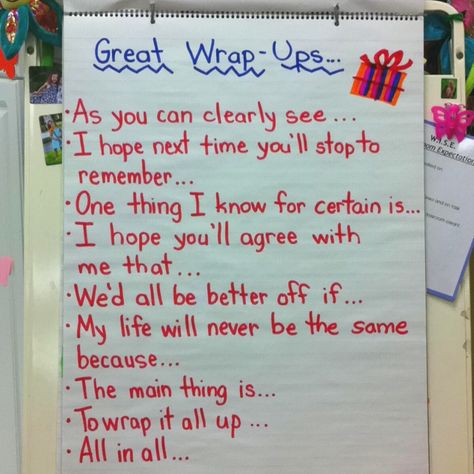 Great Wrap-Ups...
• As you can clearly see...
• I hope next time you'll stop to
remember...
• One thing I know for certain is...
• I hope you'll agree with
me that...
• We'd all be better off if...
• My life will never be the same
because...
• The main thing is...
• To wrap it all up...
• All in all...
W.I.S.E.